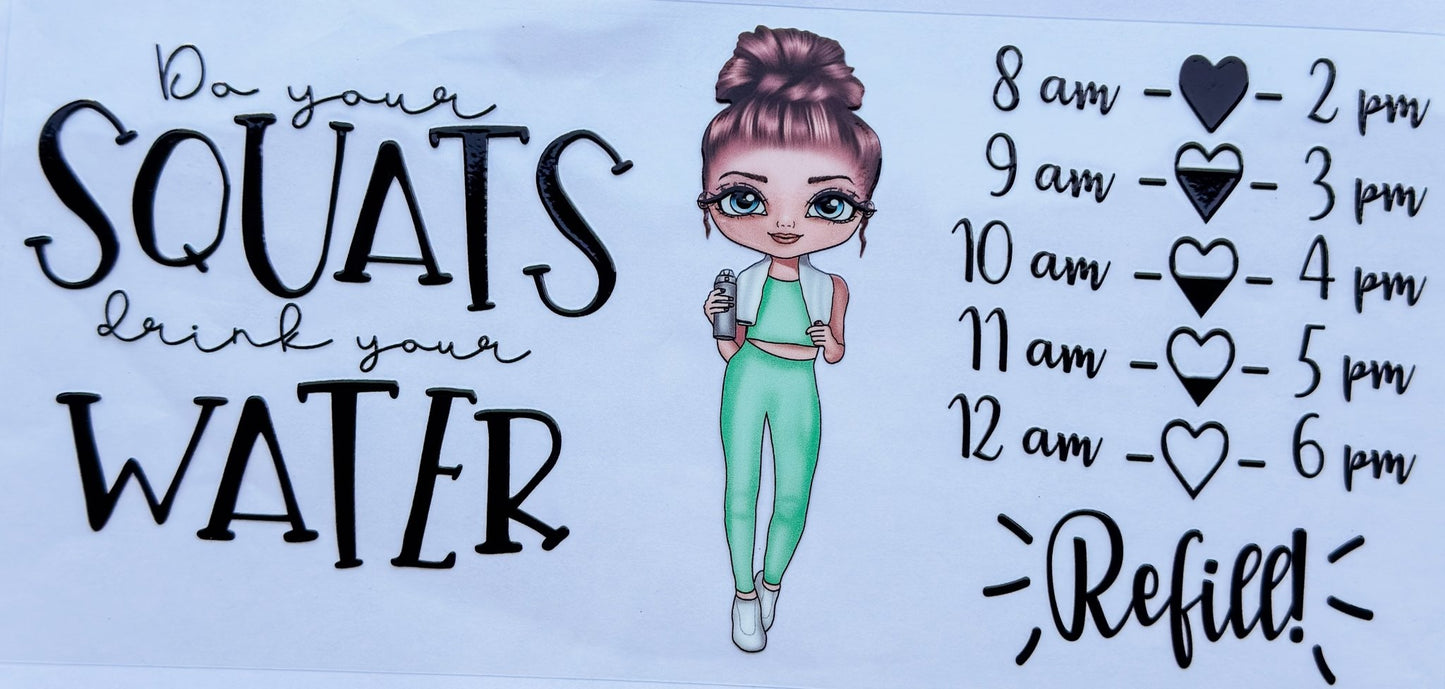 Do your
SQUATS
drink your
WATER
8 am - - 2 pm
9 am - - 3 pm
10 am - - 4 pm
11 am - - 5 pm
12 am - - 6 pm
Refill!